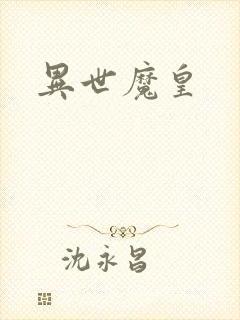 異世魔皇
沈永昌